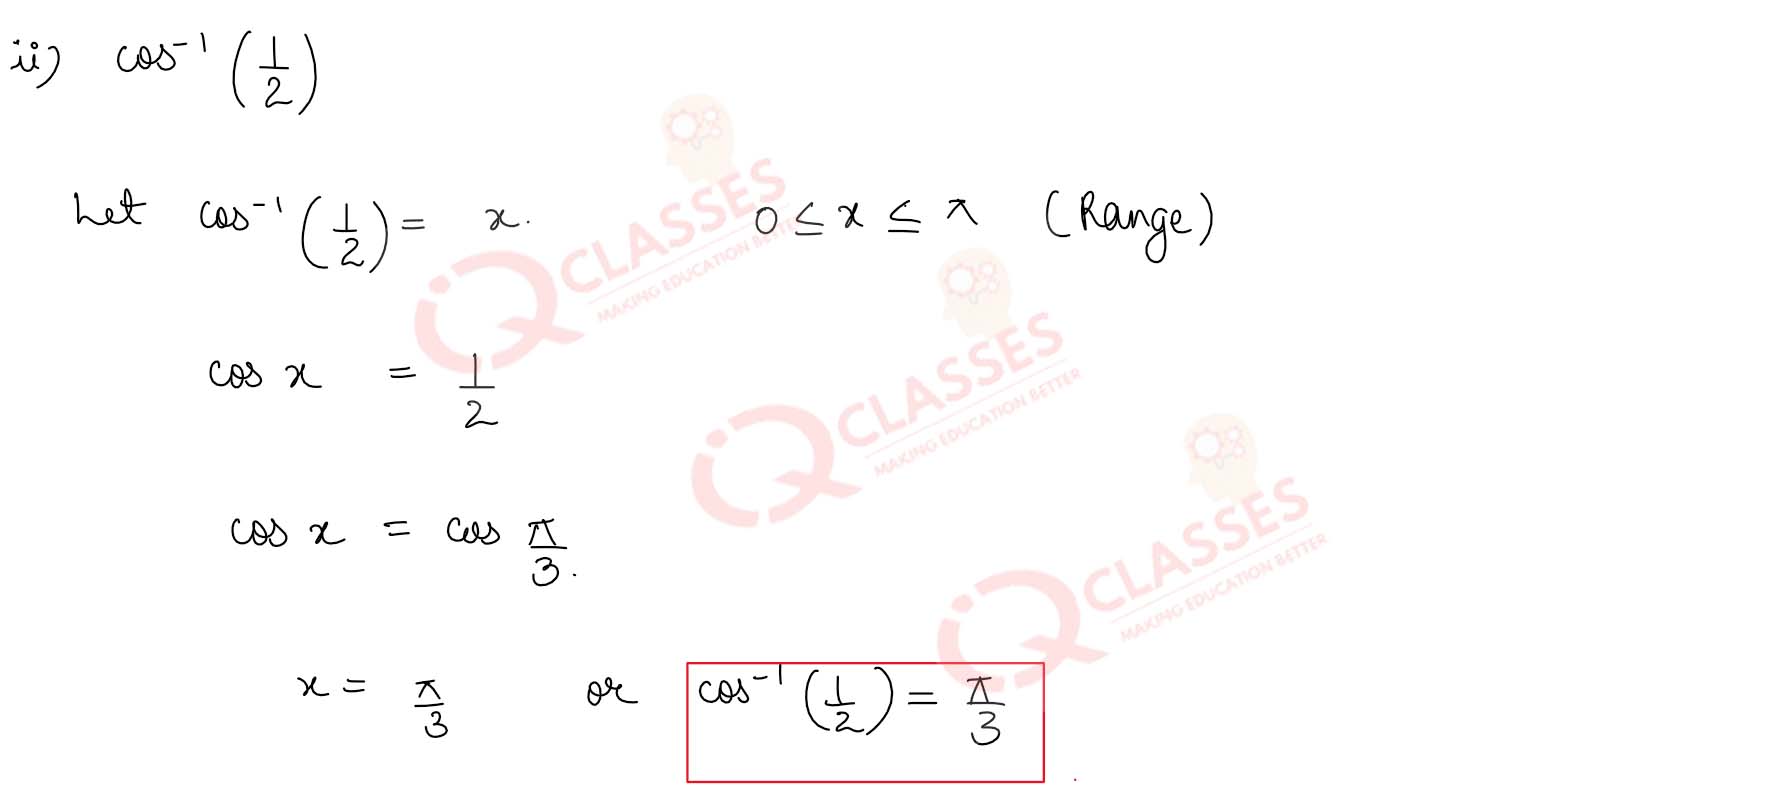 ii) cos⁻¹ (1/2)
Let cos⁻¹ (1/2) = x. 0 ≤ x ≤ π (Range)
cos x = 1/2
cos x = cos π/3.
x = π/3 or cos⁻¹ (1/2) = π/3
iQ CLASSES
MAKING EDUCATION BETTER
iQ CLASSES
MAKING EDUCATION BETTER
iQ CLASSES
MAKING EDUCATION BETTER